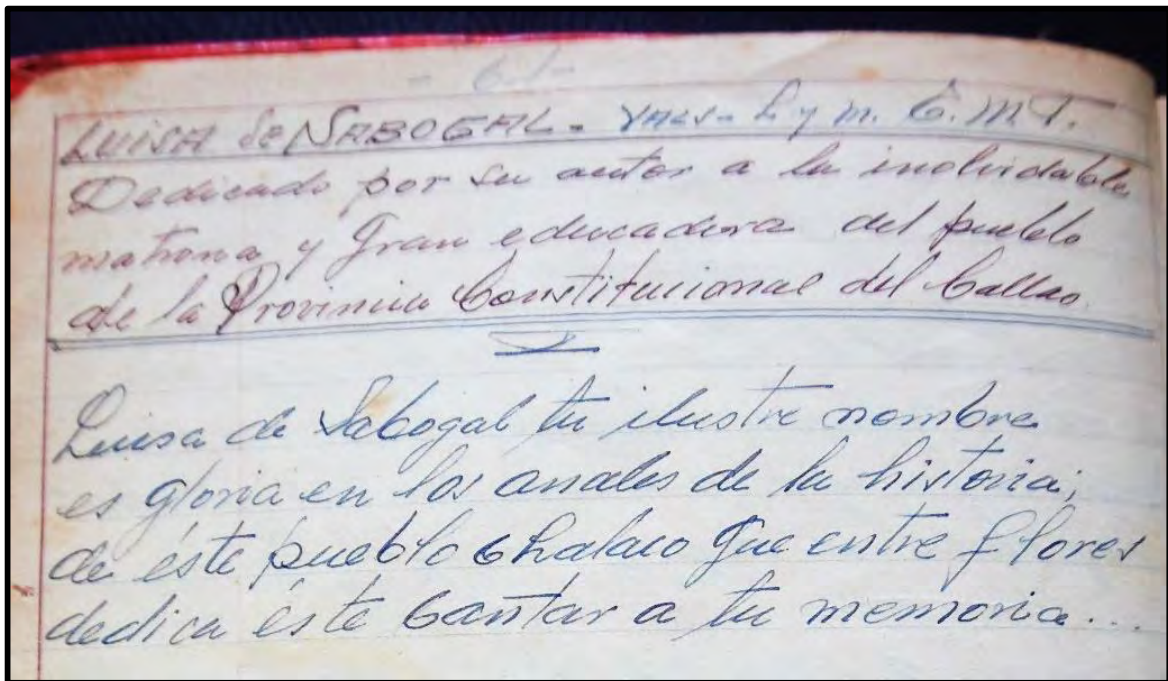 - 61 -
LUISA de SABOGAL - VALS - L y m. E. M. T.
Dedicado por su autor a la inolvidable
matrona y Gran educadora del pueblo
de la Provincia Constitucional del Callao.
Luisa de Sabogal tu ilustre nombre
es gloria en los anales de la historia;
de éste pueblo Chalaco que entre flores
dedica éste Cantar a tu memoria...